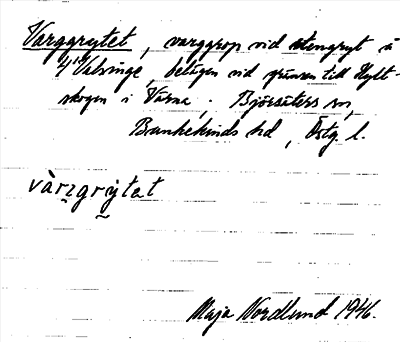 Varggrytet, varggrop vid stengryt å
Valsinge, belägen vid gränsen till Hylt-
skogen i Värna, Björsäters sn,
Bankekinds hd, Östg. l.
vàrggrýtat
Maja Nordlund 1946.